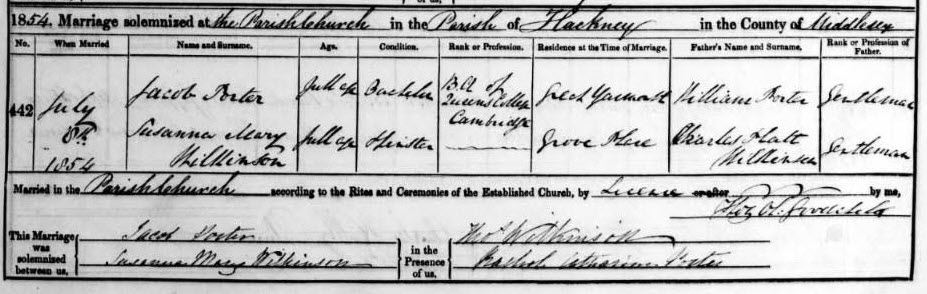 1854. Marriage solemnized at the Parish Church in the Parish of Hackney in the County of Middlesex
No. When Married Name and Surname. Age. Condition. Rank or Profession. Residence at the Time of Marriage. Father's Name and Surname. Rank or Profession of Father.
442 July 8th 1854
Jacob Porter Full age Bachelor B.A of Queens College Cambridge Great Yarmouth William Porter Gentleman
Susanna Mary Wilkinson Full age Spinster Grove Place Charles Platt Wilkinson Gentleman
Married in the Parish Church according to the Rites and Ceremonies of the Established Church, by Licence or after by me,
This Marriage was solemnized between us, Jacob Porter Susanna Mary Wilkinson in the Presence of us, Thos Wilkinson Catharine Porter